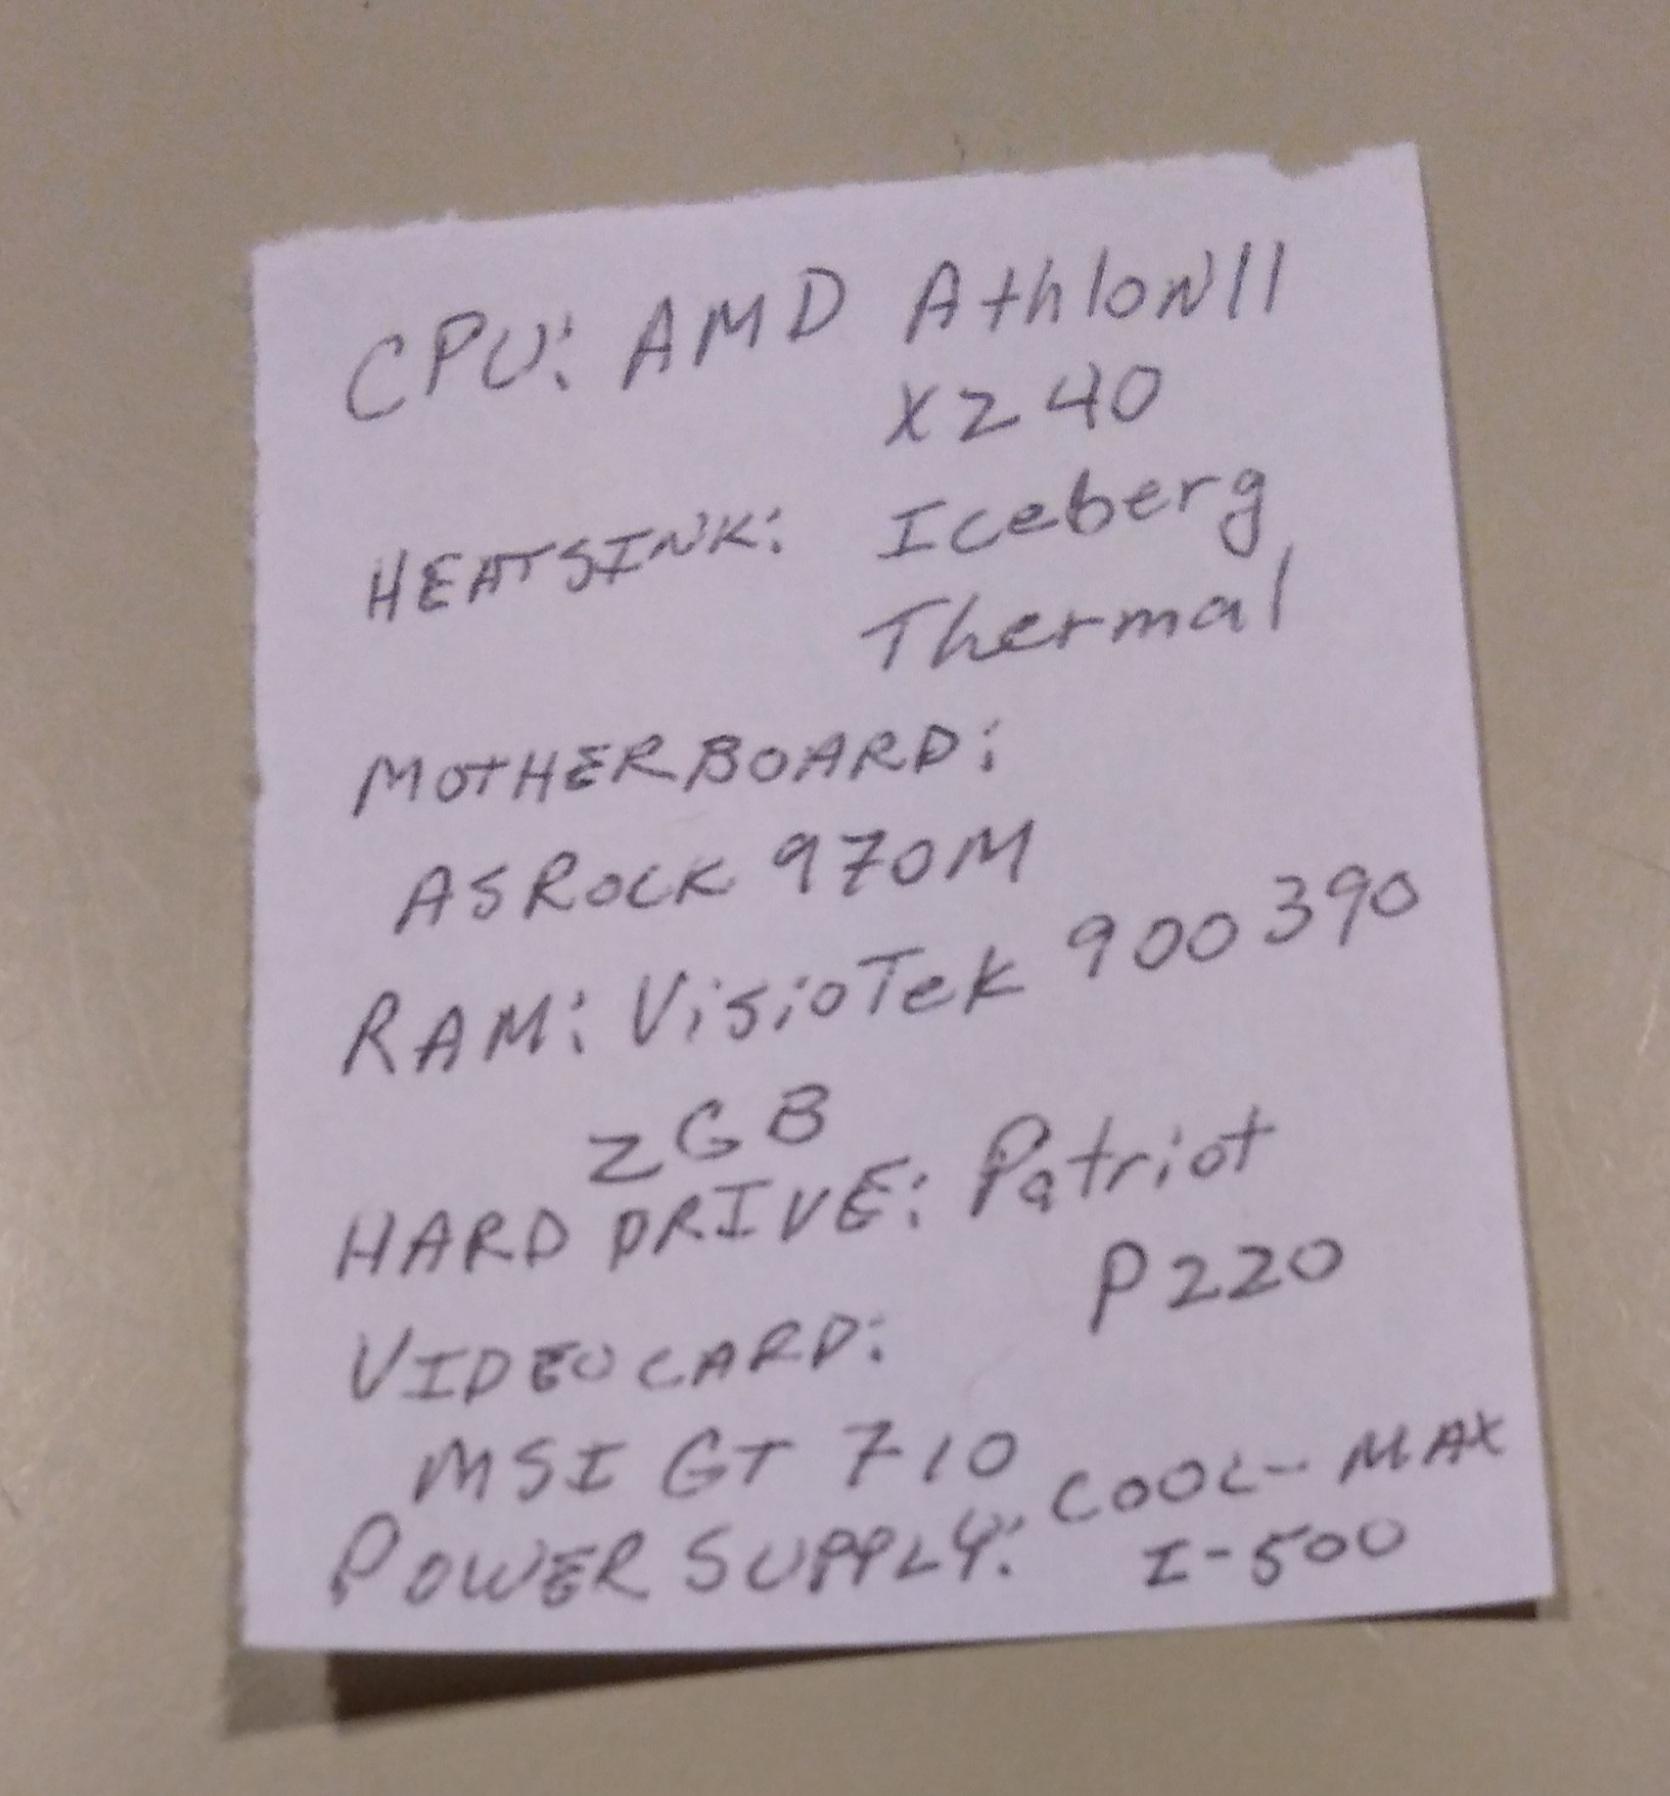 CPU: AMD Athlon II
X2 40
HEATSINK: Iceberg
Thermal
MOTHERBOARD:
ASROCK 970M
RAM: VisioTek 900390
2GB
HARD DRIVE: Patriot
P220
VIDEOCARD:
MSI GT 710
POWER SUPPLY: COOL-MAX
I-500